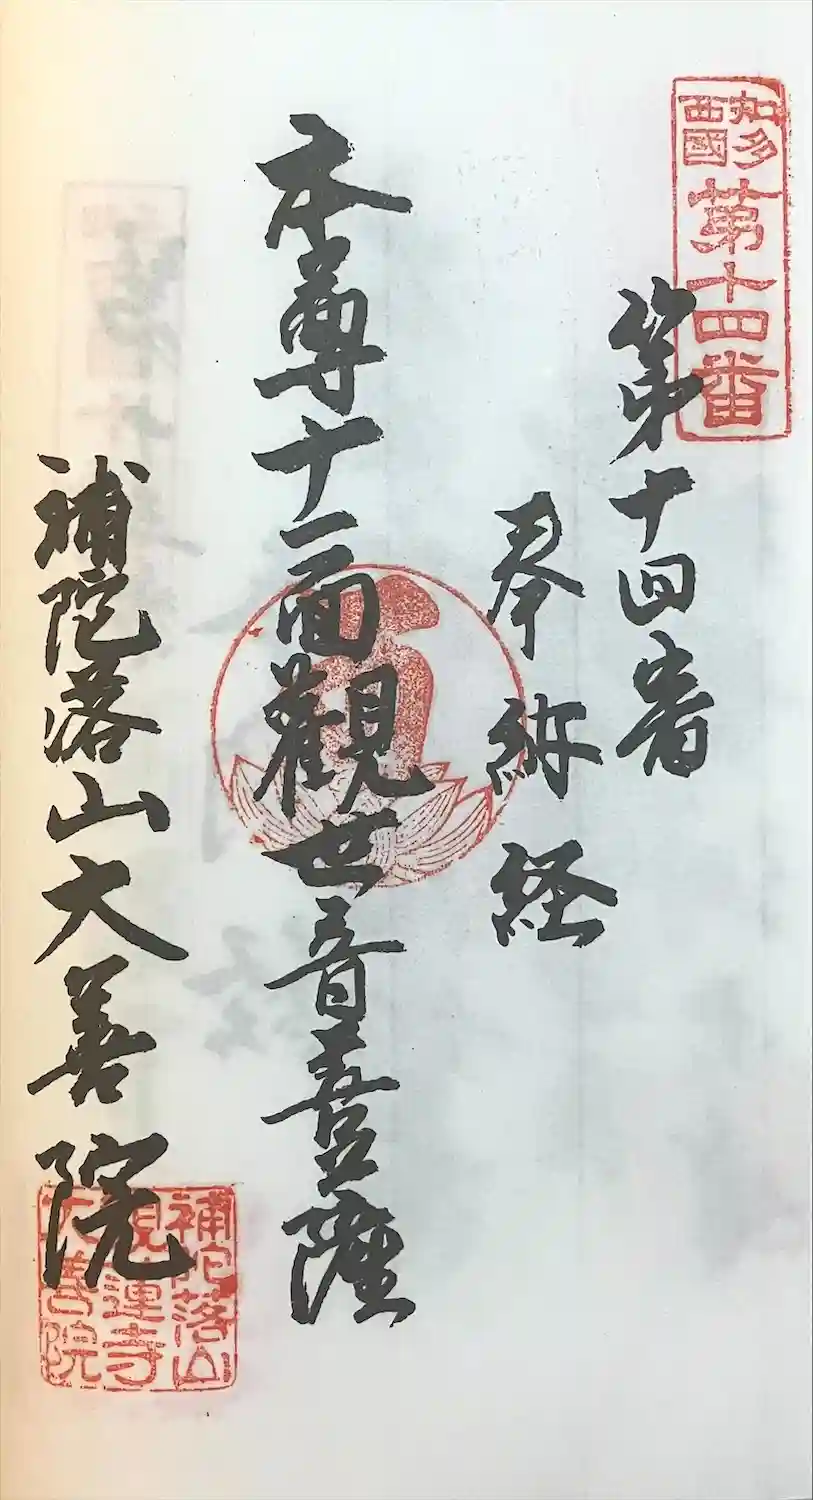 知多
西國
第十四番
第十四番
奉納経
本尊十一面觀世音菩薩
補陀落山大善院
補陀落山
蓮寺
大善院